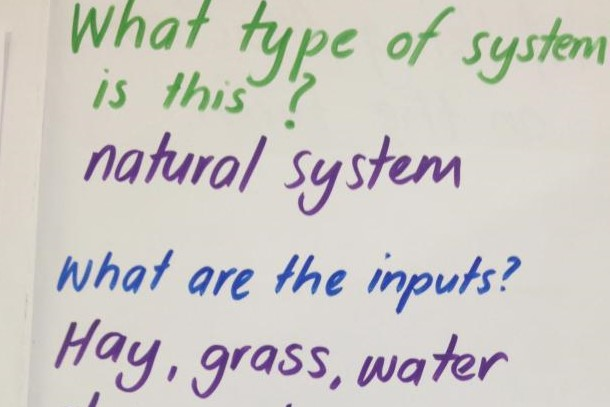 What type of system
is this?
natural system
What are the inputs?
Hay, grass, water